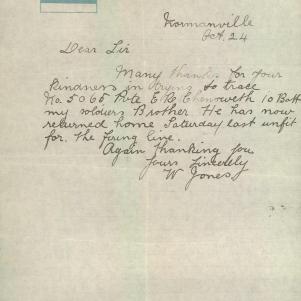 Normanville
Oct. 24
Dear Sir
Many thanks for your
kindness in trying to trace
No. 5065 Pvte E. R. Chenoweth 10 Batt
my soldiers Brother. He has now
returned home Saturday last unfit
for the firing line.
Again thanking you
Yours Sincerely
W Jones